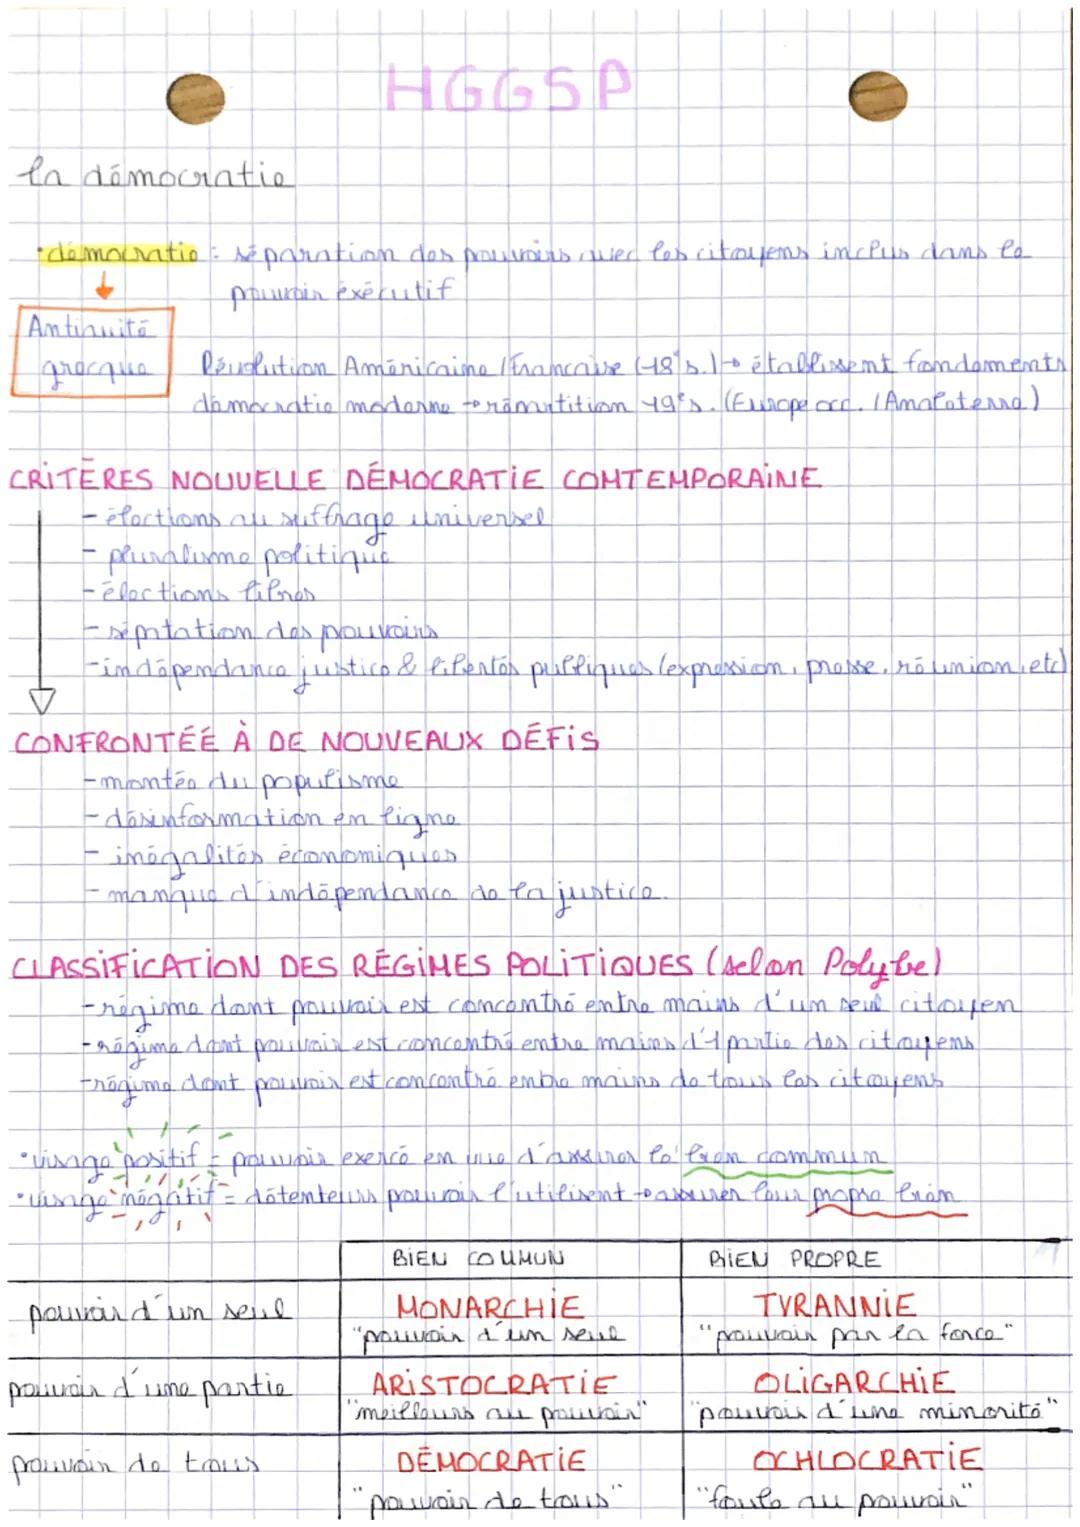 HGGSP
la démocratie
• démocratie = séparation des pouvoirs avec les citoyens inclus dans le
pouvoir éxécutif
Antiquité
grecque
Révolution Américaine / Francaise (18ᵉ s.) → établissent fondements
démocratie moderne → répartition 19ᵉ s. (Europe occ. / Angleterre)
CRITÈRES NOUVELLE DÉMOCRATIE CONTEMPORAINE
- élections au suffrage universel
- pluralisme politique
- élections libres
- séparation des pouvoirs
- indépendance justice & libertés publiques (expression, presse, réunion, etc)
CONFRONTÉE À DE NOUVEAUX DÉFIS
- montée du populisme
- désinformation en ligne
- inégalités économiques
- manque d'indépendance de la justice.
CLASSIFICATION DES RÉGIMES POLITIQUES (selon Polybe)
- régime dont pouvoir est concentré entre mains d'un seul citoyen
- régime dont pouvoir est concentré entre mains d'1 partie des citoyens
- régime dont pouvoir est concentré entre mains de tous les citoyens
• visage positif = pouvoir exercé en vue d'assurer le bien commun
• visage négatif = détenteurs pouvoir l'utilisent → assurer leur propre bien
BIEN COMMUN BIEN PROPRE
pouvoir d'un seul MONARCHIE TYRANNIE
"pouvoir d'un seul "pouvoir par la force"
pouvoir d'une partie ARISTOCRATIE OLIGARCHIE
"meilleurs au pouvoir" "pouvoir d'une minorité"
pouvoir de tous DÉMOCRATIE OCHLOCRATIE
"pouvoir de tous" "foule au pouvoir"